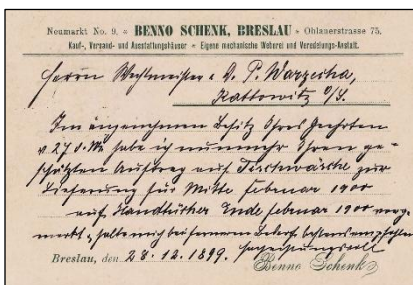 Neumarkt No. 9. * BENNO SCHENK, BRESLAU * Ohlauerstrasse 75.
Kauf-, Versand- und Ausstattungshäuser * Eigene mechanische Weberei und Veredelungs-Anstalt.
Herrn Wachtmeister a. D. P. Warzecha,
Kattowitz O/S.
Im angenehmen Besitz Ihres Geehrten
v. 27 d. Mts habe ich nunmehr Ihren ge-
schätzten Auftrag auf Tischwäsche zur
Lieferung für Mitte Februar 1900
auf Handtücher Ende Februar 1900 vorge-
merkt, halte mich bei fernerem Bedarf bestens empfohlen
hochachtungsvoll
Breslau, den 28.12.1899.
Benno Schenk